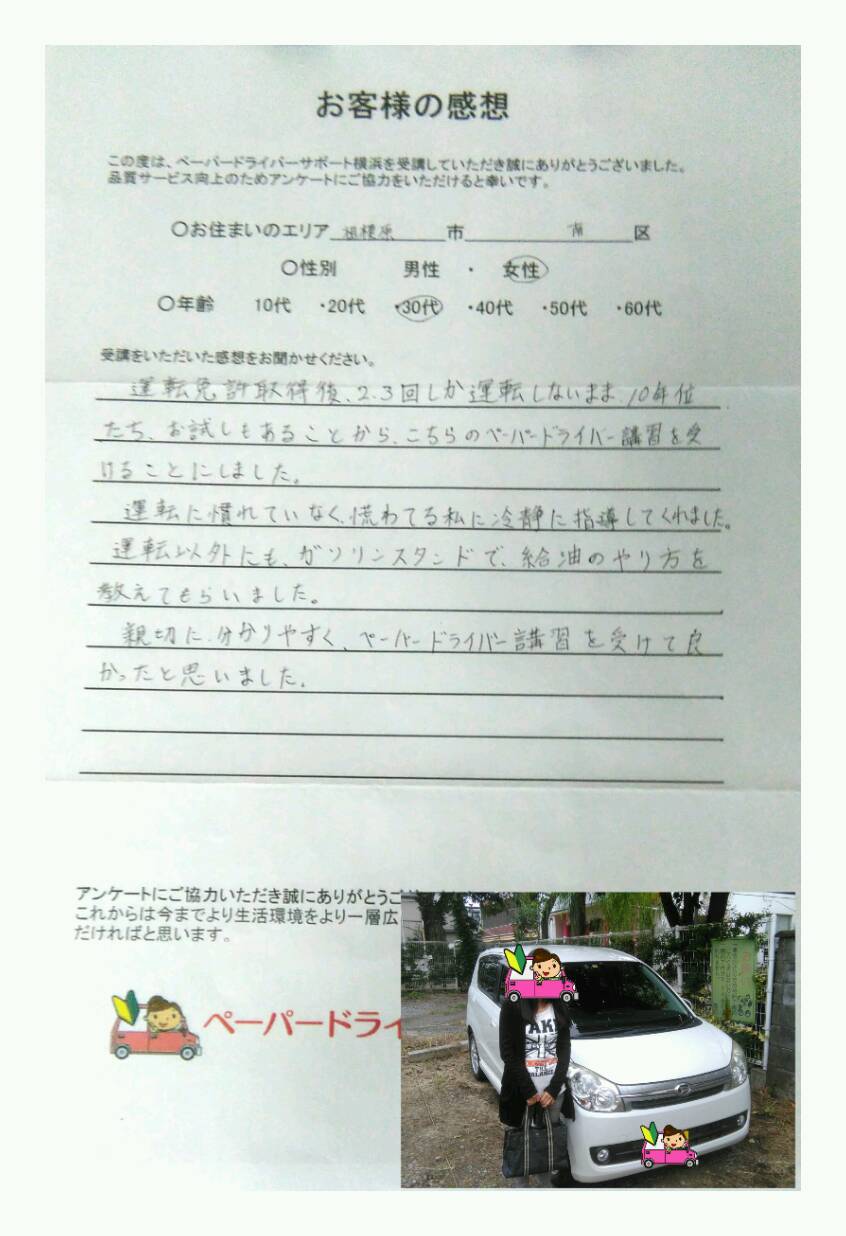 お客様の感想
この度は、ペーパードライバーサポート横浜を受講していただき誠にありがとうございました。
品質サービス向上のためアンケートにご協力をいただけると幸いです。
〇お住まいのエリア 相模原 市 南 区
〇性別 男性 ・ 女性
〇年齢 10代 ・20代 ・30代 ・40代 ・50代 ・60代
受講をいただいた感想をお聞かせください。
運転免許取得後、2.3回しか運転しないまま、10年位
たち、お試しもあることから、こちらのペーパードライバー講習を受
けることにしました。
運転に慣れていなく、慌わてる私に冷静に指導してくれました。
運転以外にも、ガソリンスタンドで、給油のやり方を
教えてもらいました。
親切に、分かりやすく、ペーパードライバー講習を受けて良
かったと思いました。
アンケートにご協力いただき誠にありがとうご
これからは今までより生活環境をより一層広
だければと思います。
ペーパードライ